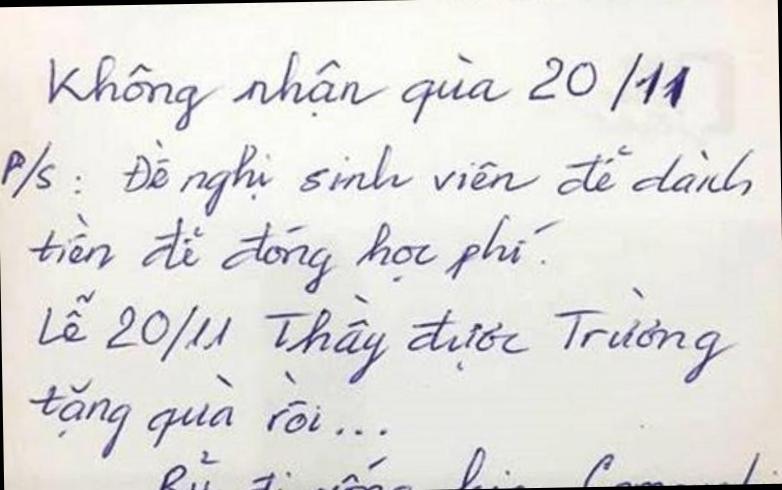 Không nhận qùa 20/11
P/s: Đề nghị sinh viên để dành
tiền để đóng học phí.
Lễ 20/11 Thầy được Trường
tặng quà rồi...